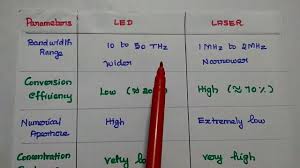 Parameters LED LASER
Bandwidth Range 10 to 50 THz Wider 1 MHz to 2 MHz Narrower
Conversion efficiency Low (≈ 20 High (≈ 70%)
Numerical Aperture High Extremely low
very